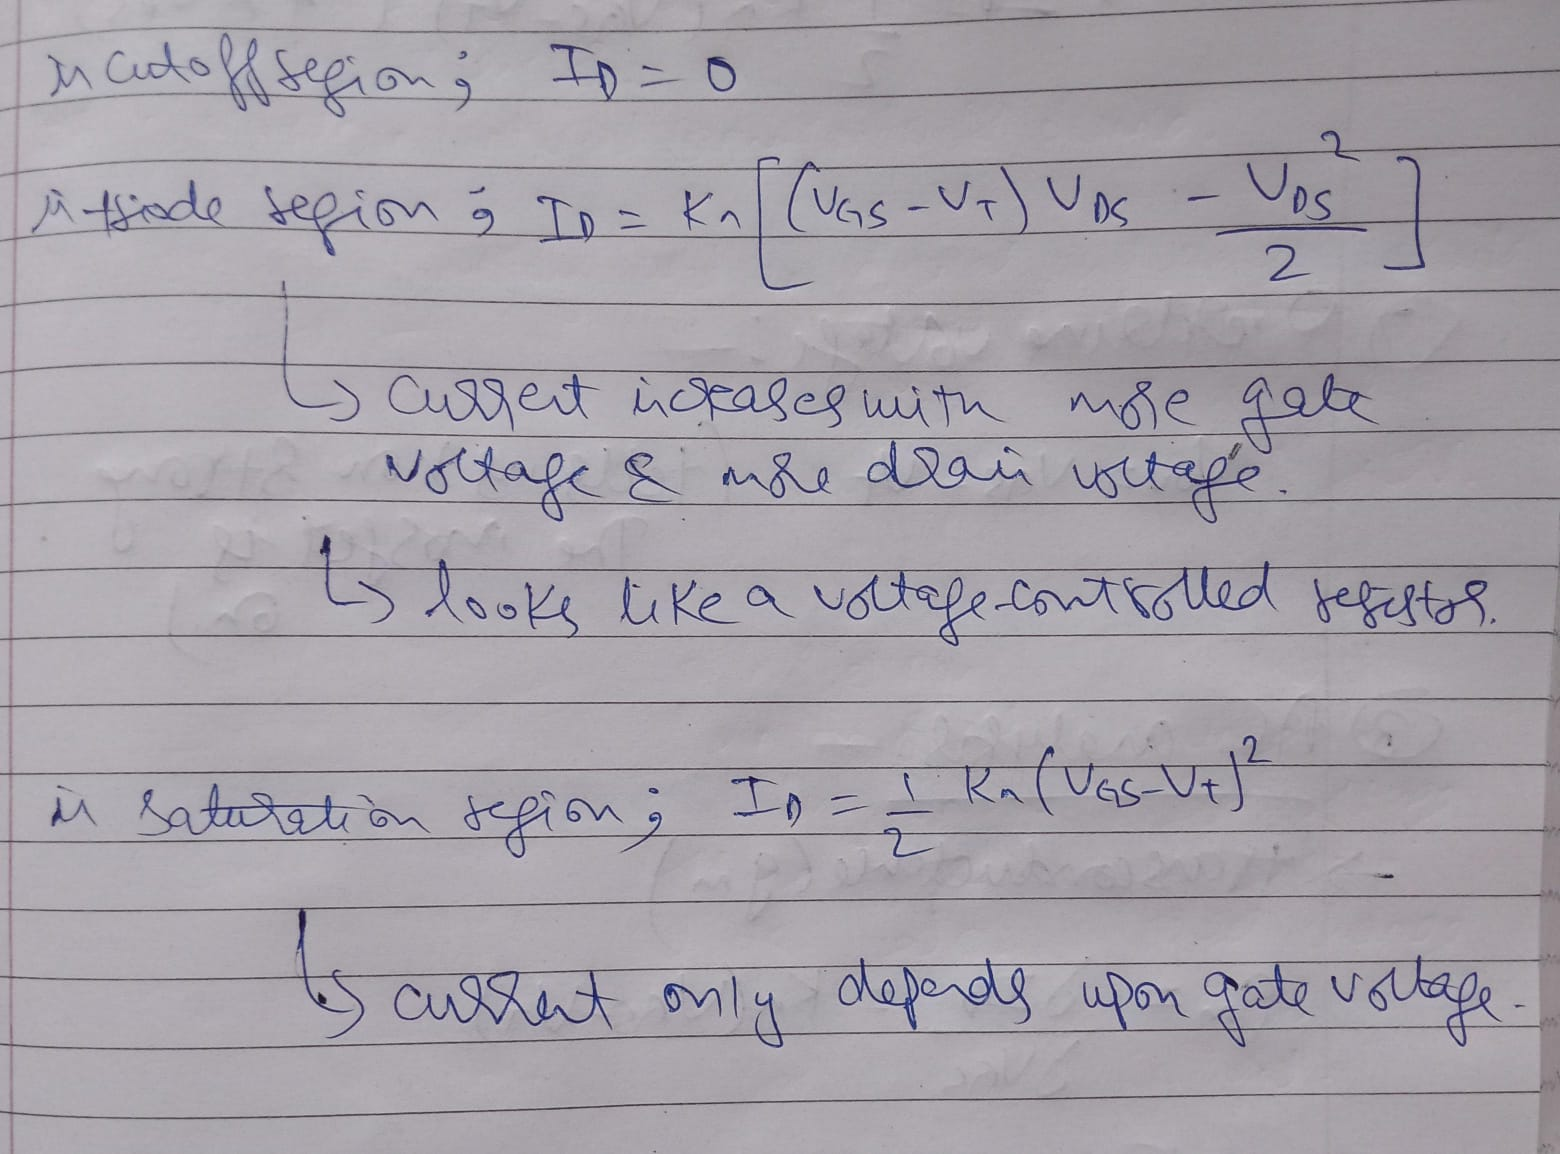 in cutoff region; ID = 0
in triode region; ID = Kn [(VGS - VT) VDS - VDS²/2]
↳ current increases with more gate
voltage & more drain voltage.
↳ looks like a voltage-controlled resistor.
in saturation region; ID = 1/2 Kn (VGS - VT)²
↳ current only depends upon gate voltage.